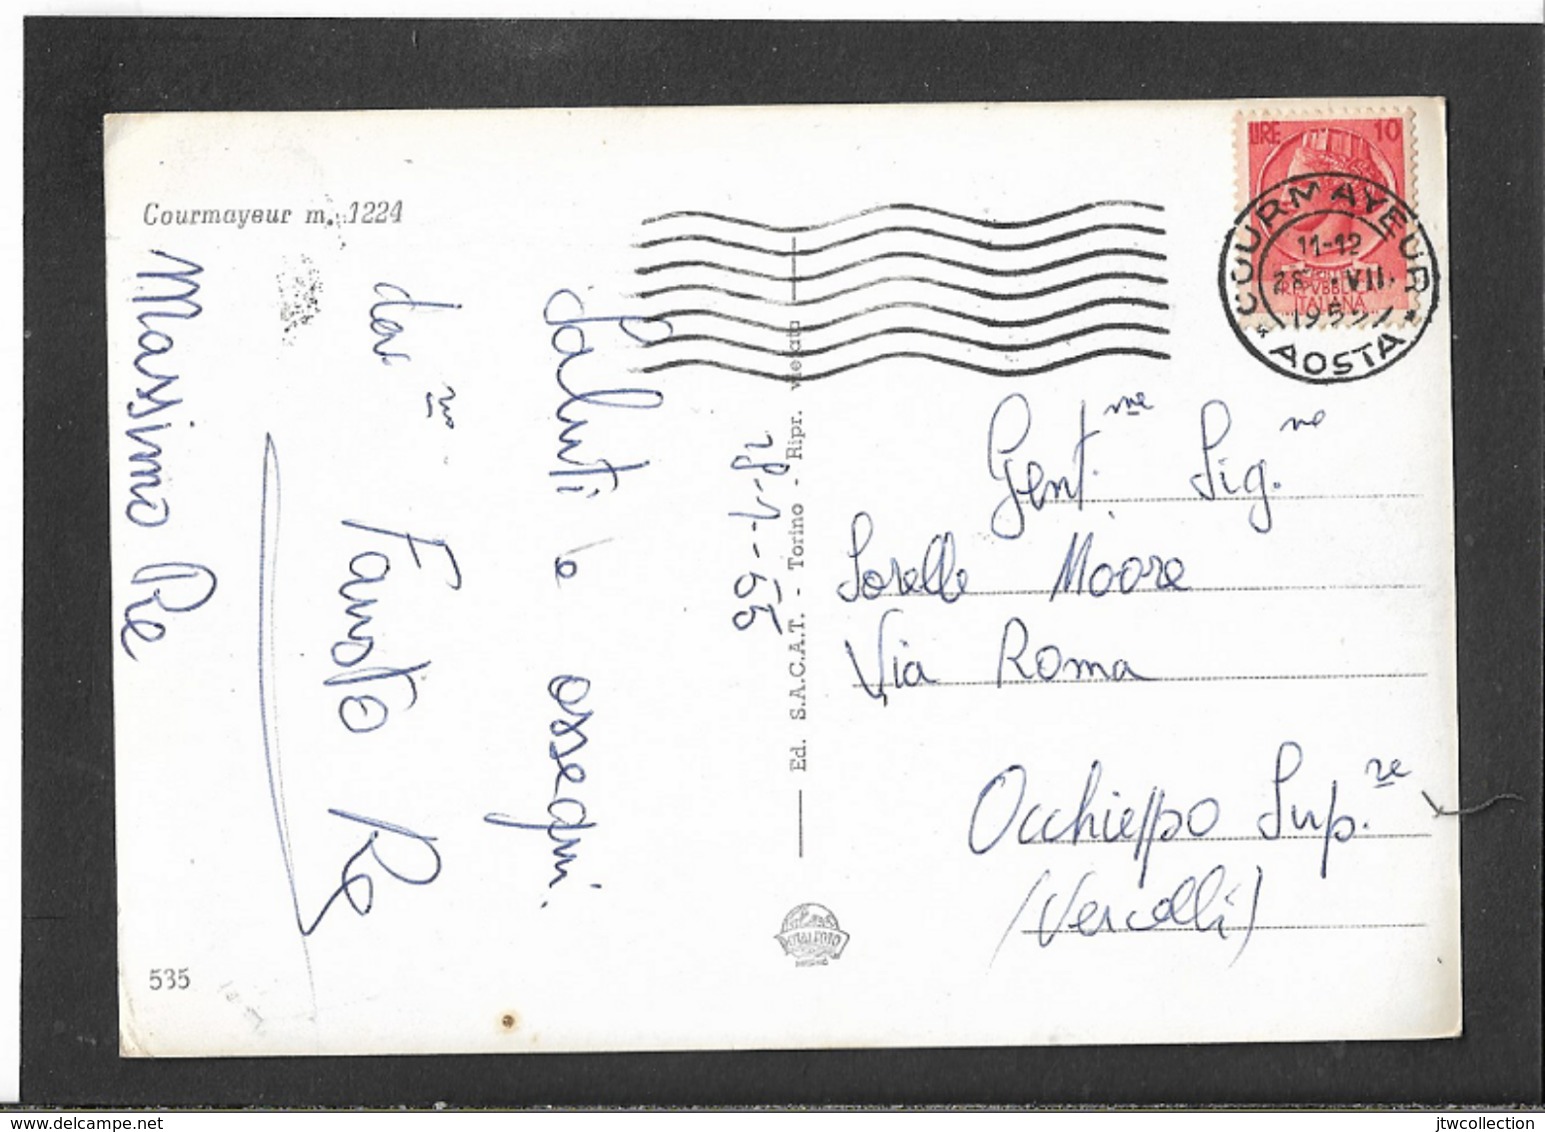 Courmayeur m. 1224
LIRE 10
COURMAYEUR
11-12
28. VII.
1955
ITALIANA
* AOSTA *
28-7-55
Saluti e ossequi
da
Fausto Re
Massimo Re
Gent.me Sig.ne
Sorelle Moore
Via Roma
Occhieppo Sup.re
(Vercelli)
Ed. S.A.C.A.T. - Torino - Ripr. vietata
535
delcampe.net
jtwcollection